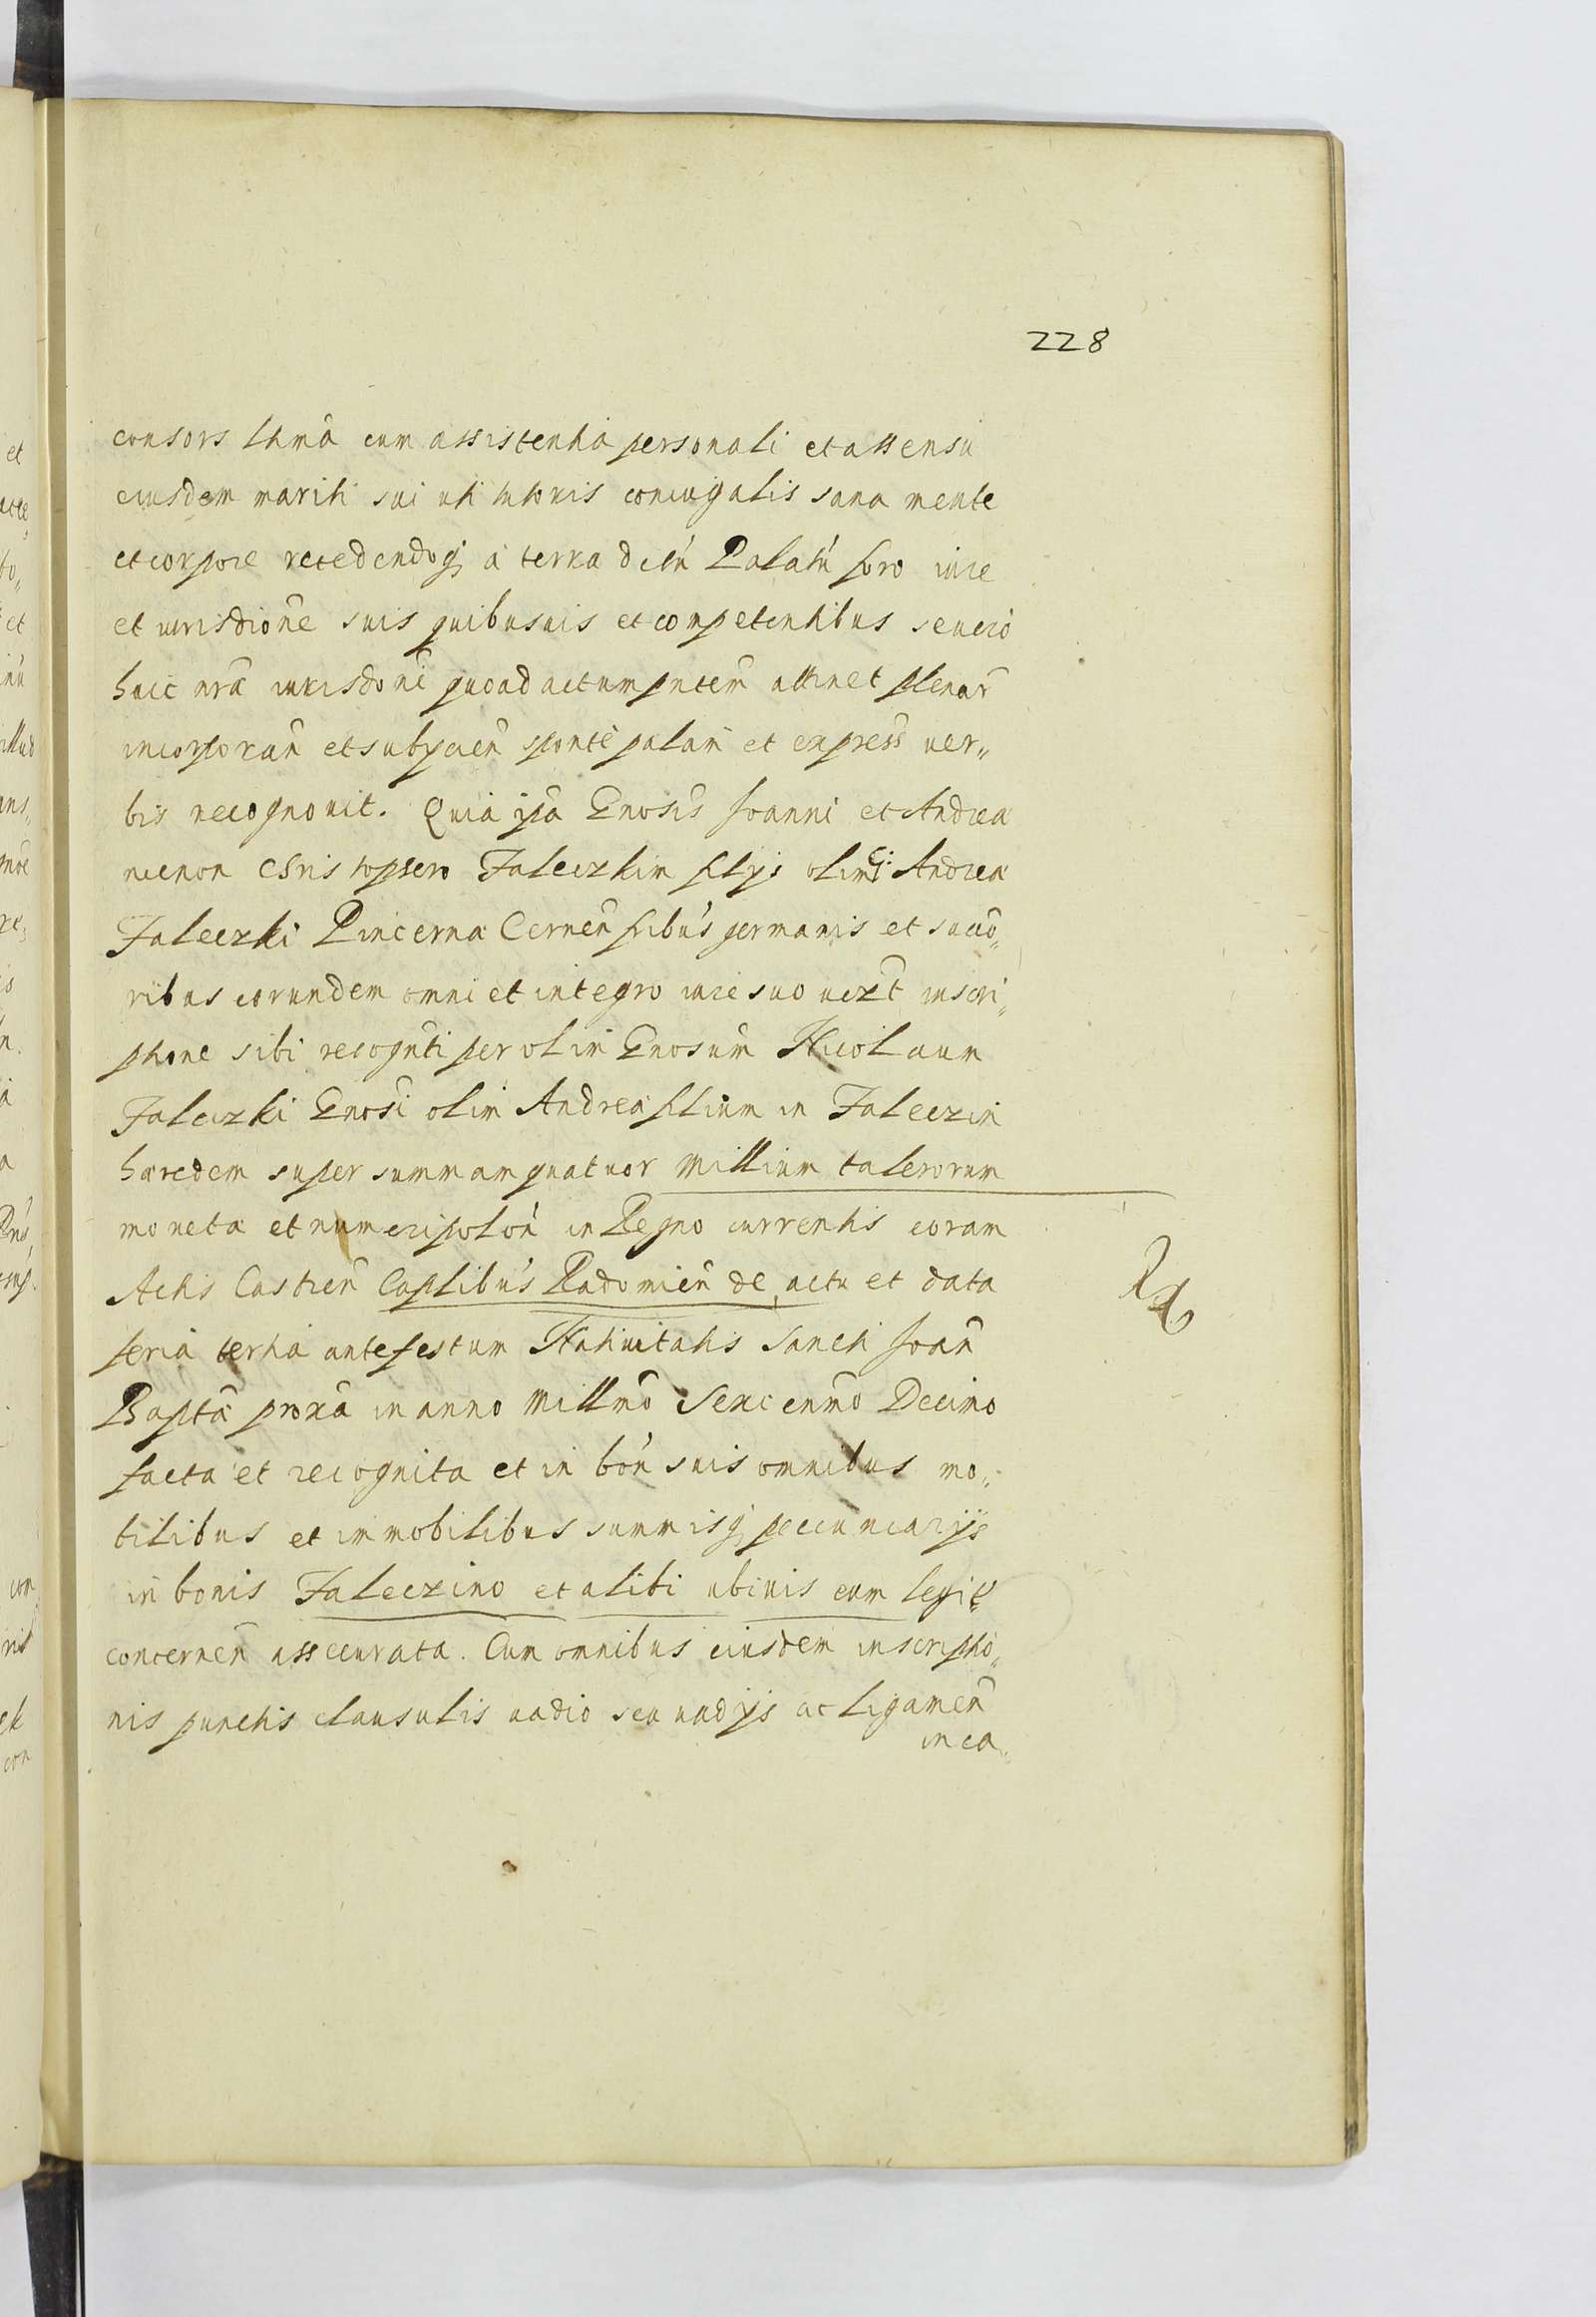 228
consors lhma cum assistentia personali et assensu
eiusdem mariti sui uti tutoris coniugalis sana mente
et corpore recedendoq; a terra districtu Palatu foro iure
et iurisdione suis quibusuis et competentibus seuero
huic nra iurisdoni quoad actum pntem attinet plenar
incorporan et subycien sponte palam et express uer„
bis recognouit. Quia ipa Gnosis Joanni et Andrea
necnon Christophero Faleczkim filys olim G: Andrea
Faleczki Pincerna Cernen fribus germanis et succo„
ribus eorundem omni et integro iure suo uezt inscri„
ptione sibi recognti per olim Gnosum Nicolaum
Faleczki Gnosi olim Andrea filium in Faleczin
hæredem super summam quatuor millium talerorum
moneta et numeri polon in Regno currentis coram
Actis Castren Captlibus Radomien de actu et data
feria tertia ante festum Natiuitatis Sancti Joan
Bapta proxa in anno Millmo Sexcenmo Decimo
facta et recognita et in bon suis omnibus mo„
bilibus et immobilibus summisq; pecuniarijs
in bonis Faleczino et alibi ubiuis eum legit
concernen assecurata. Cum omnibus eiusdem inscriptio„
nis punctis clausulis uadio seu uadijs ac ligamen
in ea„